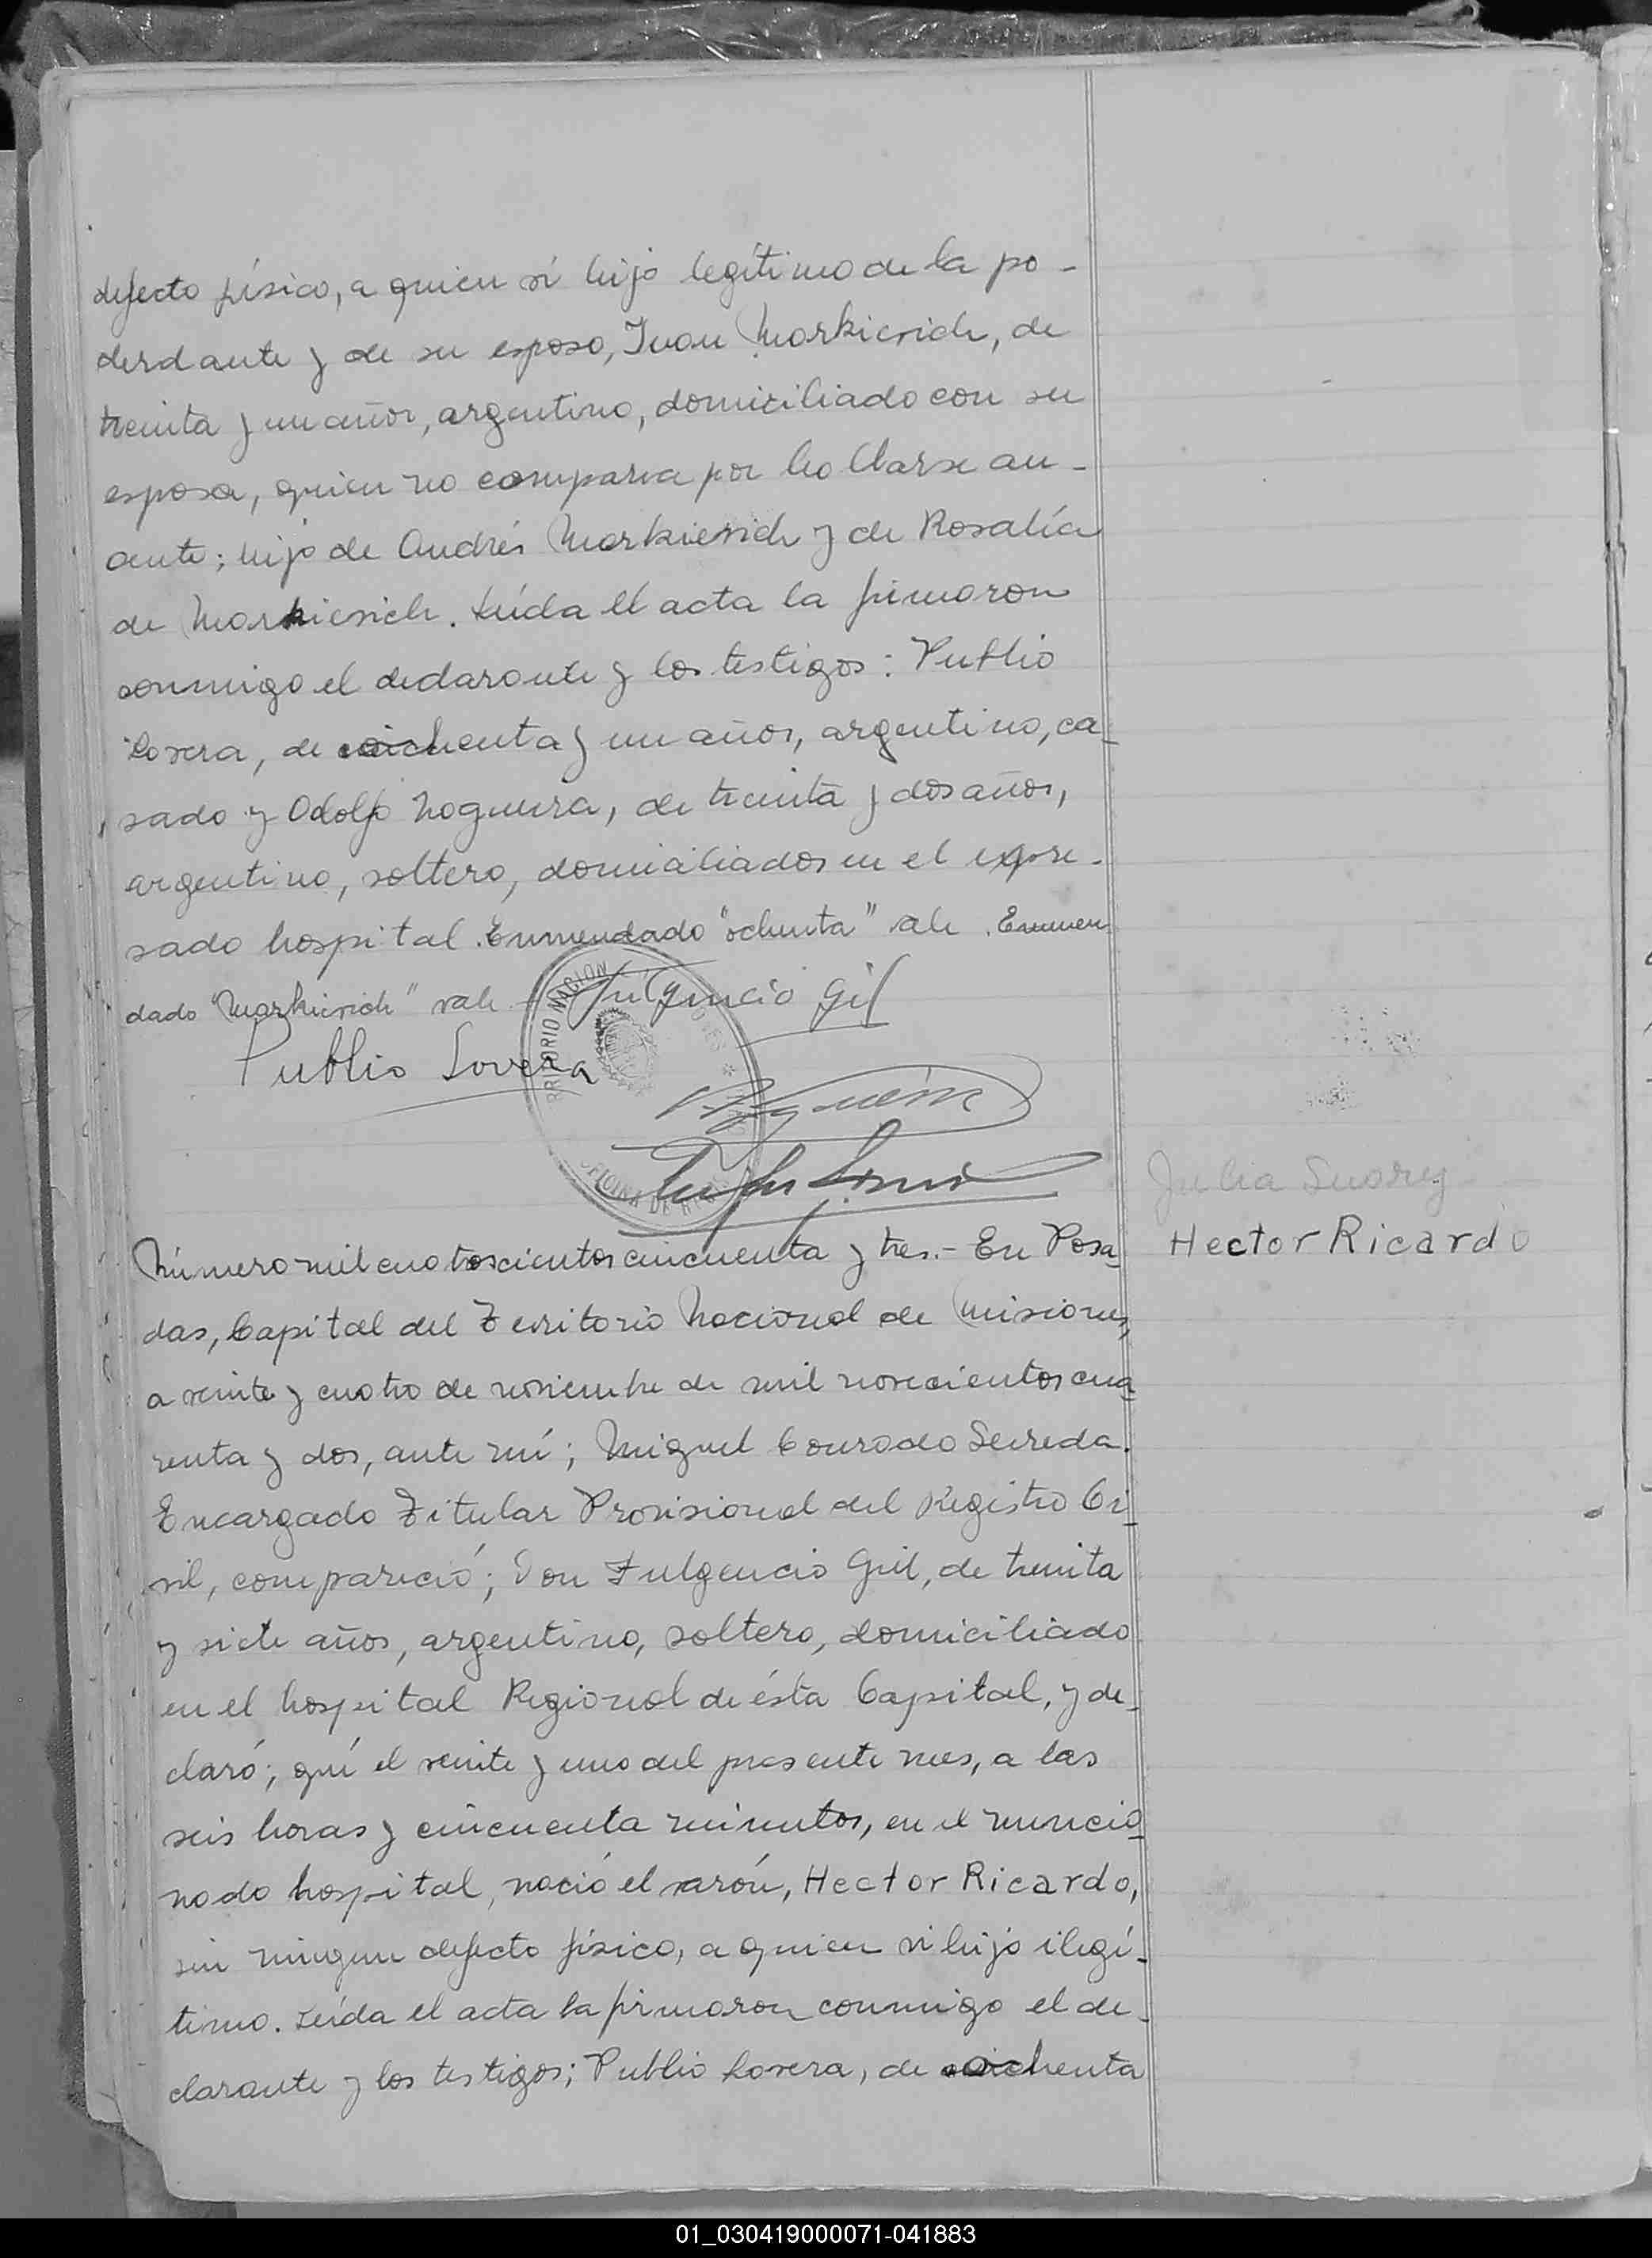 defecto físico, a quien vi hijo legítimo de la po-
derdante y de su esposo, Juan Markievich, de
treinta y un años, argentino, domiciliado con su
esposa, quien no comparece por hallarse au-
ente; hijo de Andrés Markievich y de Rosalía
de Markievich. Leída el acta la firmaron
conmigo el declarante y los testigos: Publio
Lovera, de ochenta y un años, argentino, ca-
sado y Odolfo Noguera, de treinta y dos años,
argentino, soltero, domiciliados en el expre-
sado hospital. Enmendado "ochenta" vale. Enmen
dado "Markievich" vale
Fulgencio Gil
Publio Lovera
RRITORIO NACION
OFICINA DE
Julia Suarez
Hector Ricardo
Número mil cuatrocientos cincuenta y tres.- En Posa-
das, Capital del Territorio Nacional de Misiones,
a veinte y cuatro de noviembre de mil novecientos cua-
renta y dos, ante mí; Miguel Conrado Sereda.
Encargado Titular Provisional del Registro Ci-
vil, compareció; Don Fulgencio Gil, de treinta
y siete años, argentino, soltero, domiciliado
en el hospital Regional de ésta Capital, y de-
claró; qué el veinte y uno del presente mes, a las
seis horas y cincuenta minutos, en el mencio-
nado hospital, nació el varón, Hector Ricardo,
sin ningun defecto físico, a quien vi hijo ilegí-
timo. Leída el acta la firmaron conmigo el de-
clarante y los testigos; Publio Lovera, de ochenta
01_030419000071-041883